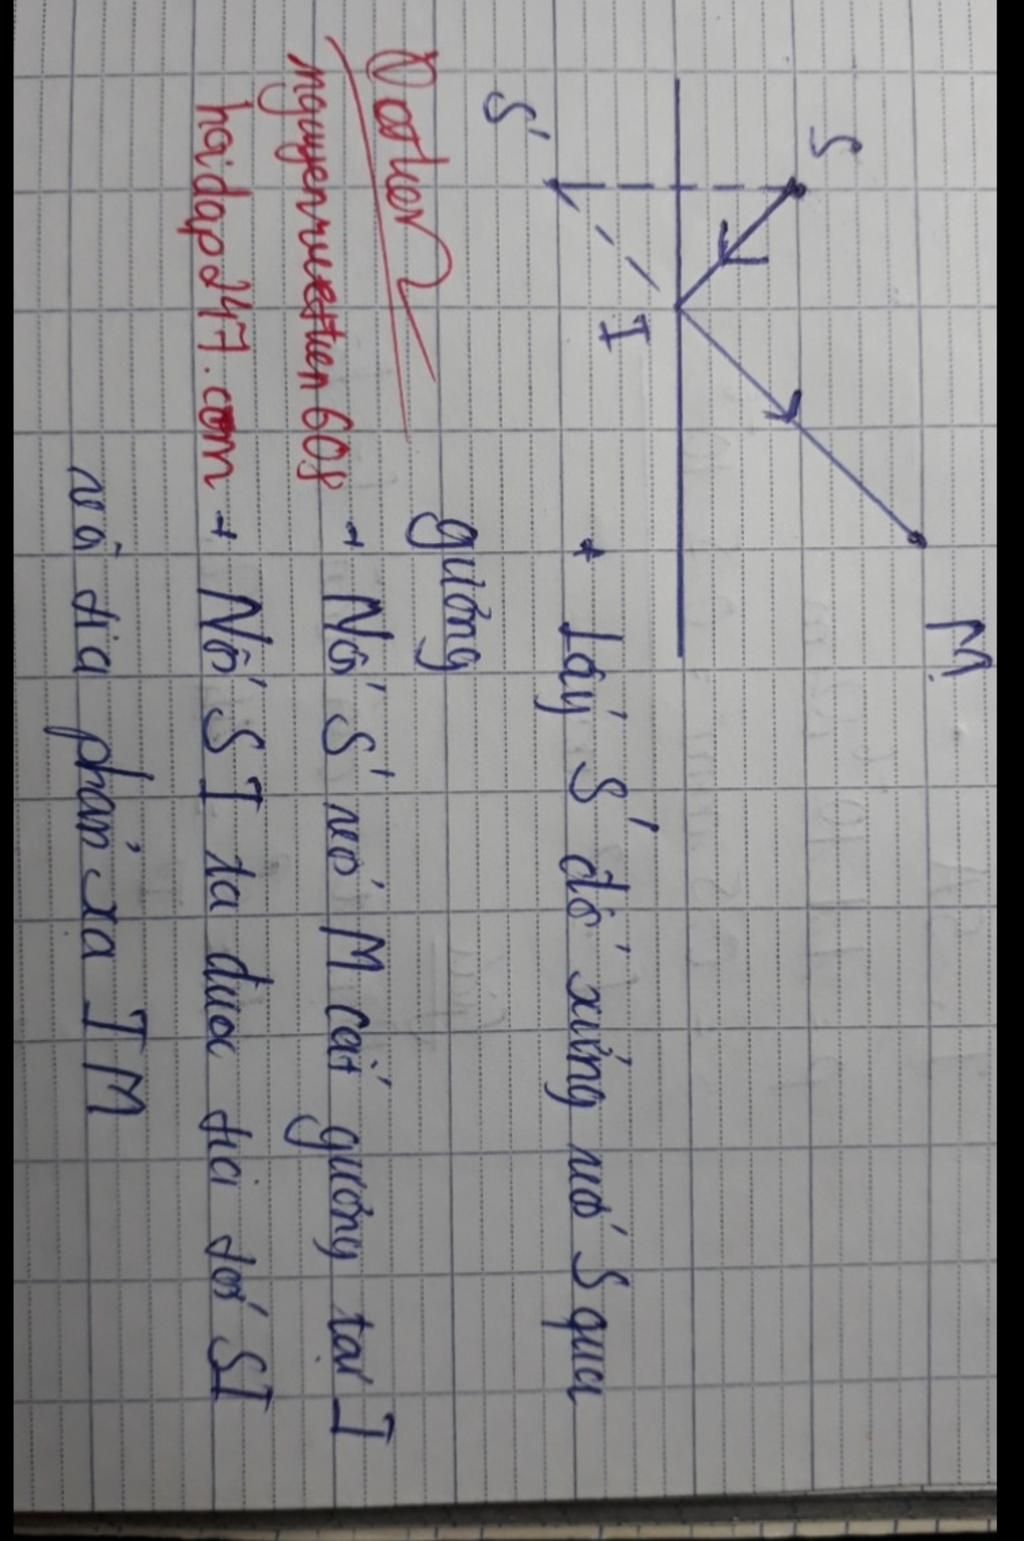 S
M
I
S'
+ Lấy S' đối xứng với S qua
gương
+ Nối S' với M cắt gương tại I
+ Nối SI ta được tia tới SI
và tia phản xạ IM
hoidap247.com